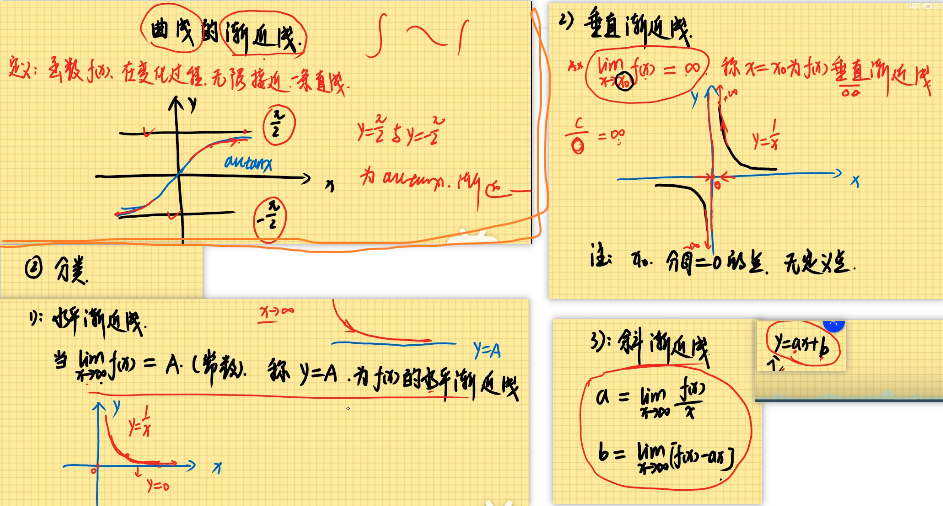 曲线的渐近线.
定义: 函数 f(x). 在变化过程. 无限接近一条直线.
y
π/2
arctanx
x
-π/2
y=π/2 与 y=-π/2
为 arctanx. 渐近
② 分类.
1): 水平渐近线.
x→∞
y=A
当 lim x→∞ f(x) = A. (常数). 称 y=A. 为 f(x) 的水平渐近线
y
y=1/x
0
x
y=0
2) 垂直渐近线.
lim x→x₀ f(x) = ∞. 称 x=x₀ 为 f(x) 垂直渐近线
C/0 = ∞
y
+∞
y=1/x
x
0
-∞
注: x₀. 分母=0 的点. 无定义点.
3): 斜渐近线
y=ax+b
a = lim x→∞ f(x)/x
b = lim x→∞ [f(x)-ax]